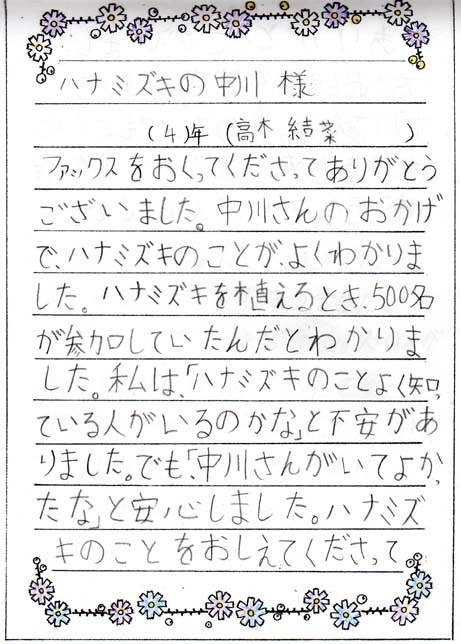 ハナミズキの中川 様
(4)年 (高木 結菜 )
ファックスをおくってくださってありがとう
ございました。中川さんのおかげ
で、ハナミズキのことが、よくわかりま
した。ハナミズキを植えるとき、500名
が参加していたんだとわかりま
した。私は、「ハナミズキのことよく知っ
ている人がいるのかな」と不安があ
りました。でも、「中川さんがいてよかっ
たな」と安心しました。ハナミズ
キのことをおしえてくださって